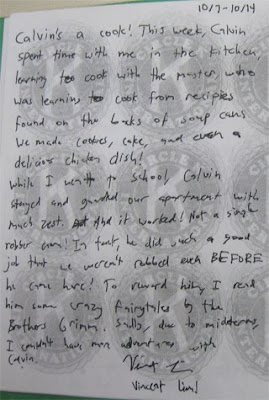 10/7-10/14
Calvin's a cook! This week, Calvin
spent time with me in the kitchen,
learning to cook with the master, who
was learning to cook from recipies
found on the backs of soup cans
We made cookies, cake, and even a
delicious chicken dish!
While I went to school, Calvin
stayed and guarded our apartment with
much zest. And it worked! Not a single
robber came! In fact, he did such a good
job that we weren't robbed even BEFORE
he came here! To reward him, I read
him some crazy fairytales by the
Brothers Grimm. Sadly, due to midterms,
I couldn't have more adventures with
Calvin.
Vincent